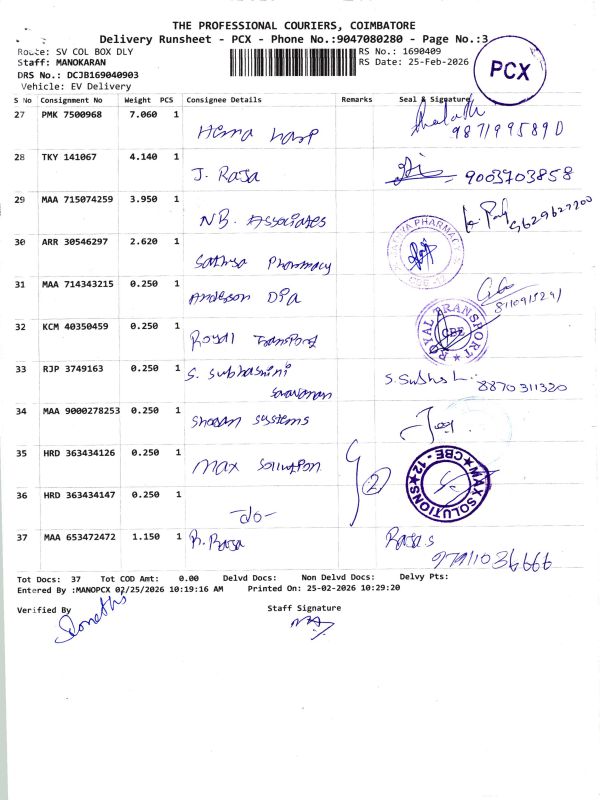 THE PROFESSIONAL COURIERS, COIMBATORE
Delivery Runsheet - PCX - Phone No.:9047080280 - Page No.:3
Route: SV COL BOX DLY
RS No.: 1690409
Staff: MANOKARAN
RS Date: 25-Feb-2026
PCX
DRS No.: DCJB169040903
Vehicle: EV Delivery
S No Consignment No Weight PCS Consignee Details Remarks Seal & Signature
27 PMK 7500968 7.060 1 Hema 9871995890
28 TKY 141067 4.140 1 J. Raja 9003703858
29 MAA 715074259 3.950 1 NB. Associates 5629627700
30 ARR 30546297 2.620 1 Sathya Pharmacy PHARMAC
31 MAA 714343215 0.250 1 Anderson DPA
32 KCM 40350459 0.250 1 Royal Transport ROYAL TRANSPORT CBE
33 RJP 3749163 0.250 1 S. Subhashini S. Subha 8870311320
34 MAA 9000278253 0.250 1 systems
35 HRD 363434126 0.250 1 Max Solution 2 MAX SOLUTIONS CBE - 12
36 HRD 363434147 0.250 1 -do-
37 MAA 653472472 1.150 1 R. Raja Raja.s 9791036666
Tot Docs: 37 Tot COD Amt: 0.00 Delvd Docs: Non Delvd Docs: Delvy Pts:
Entered By :MANOPCX 02/25/2026 10:19:16 AM Printed On: 25-02-2026 10:29:20
Verified By Staff Signature